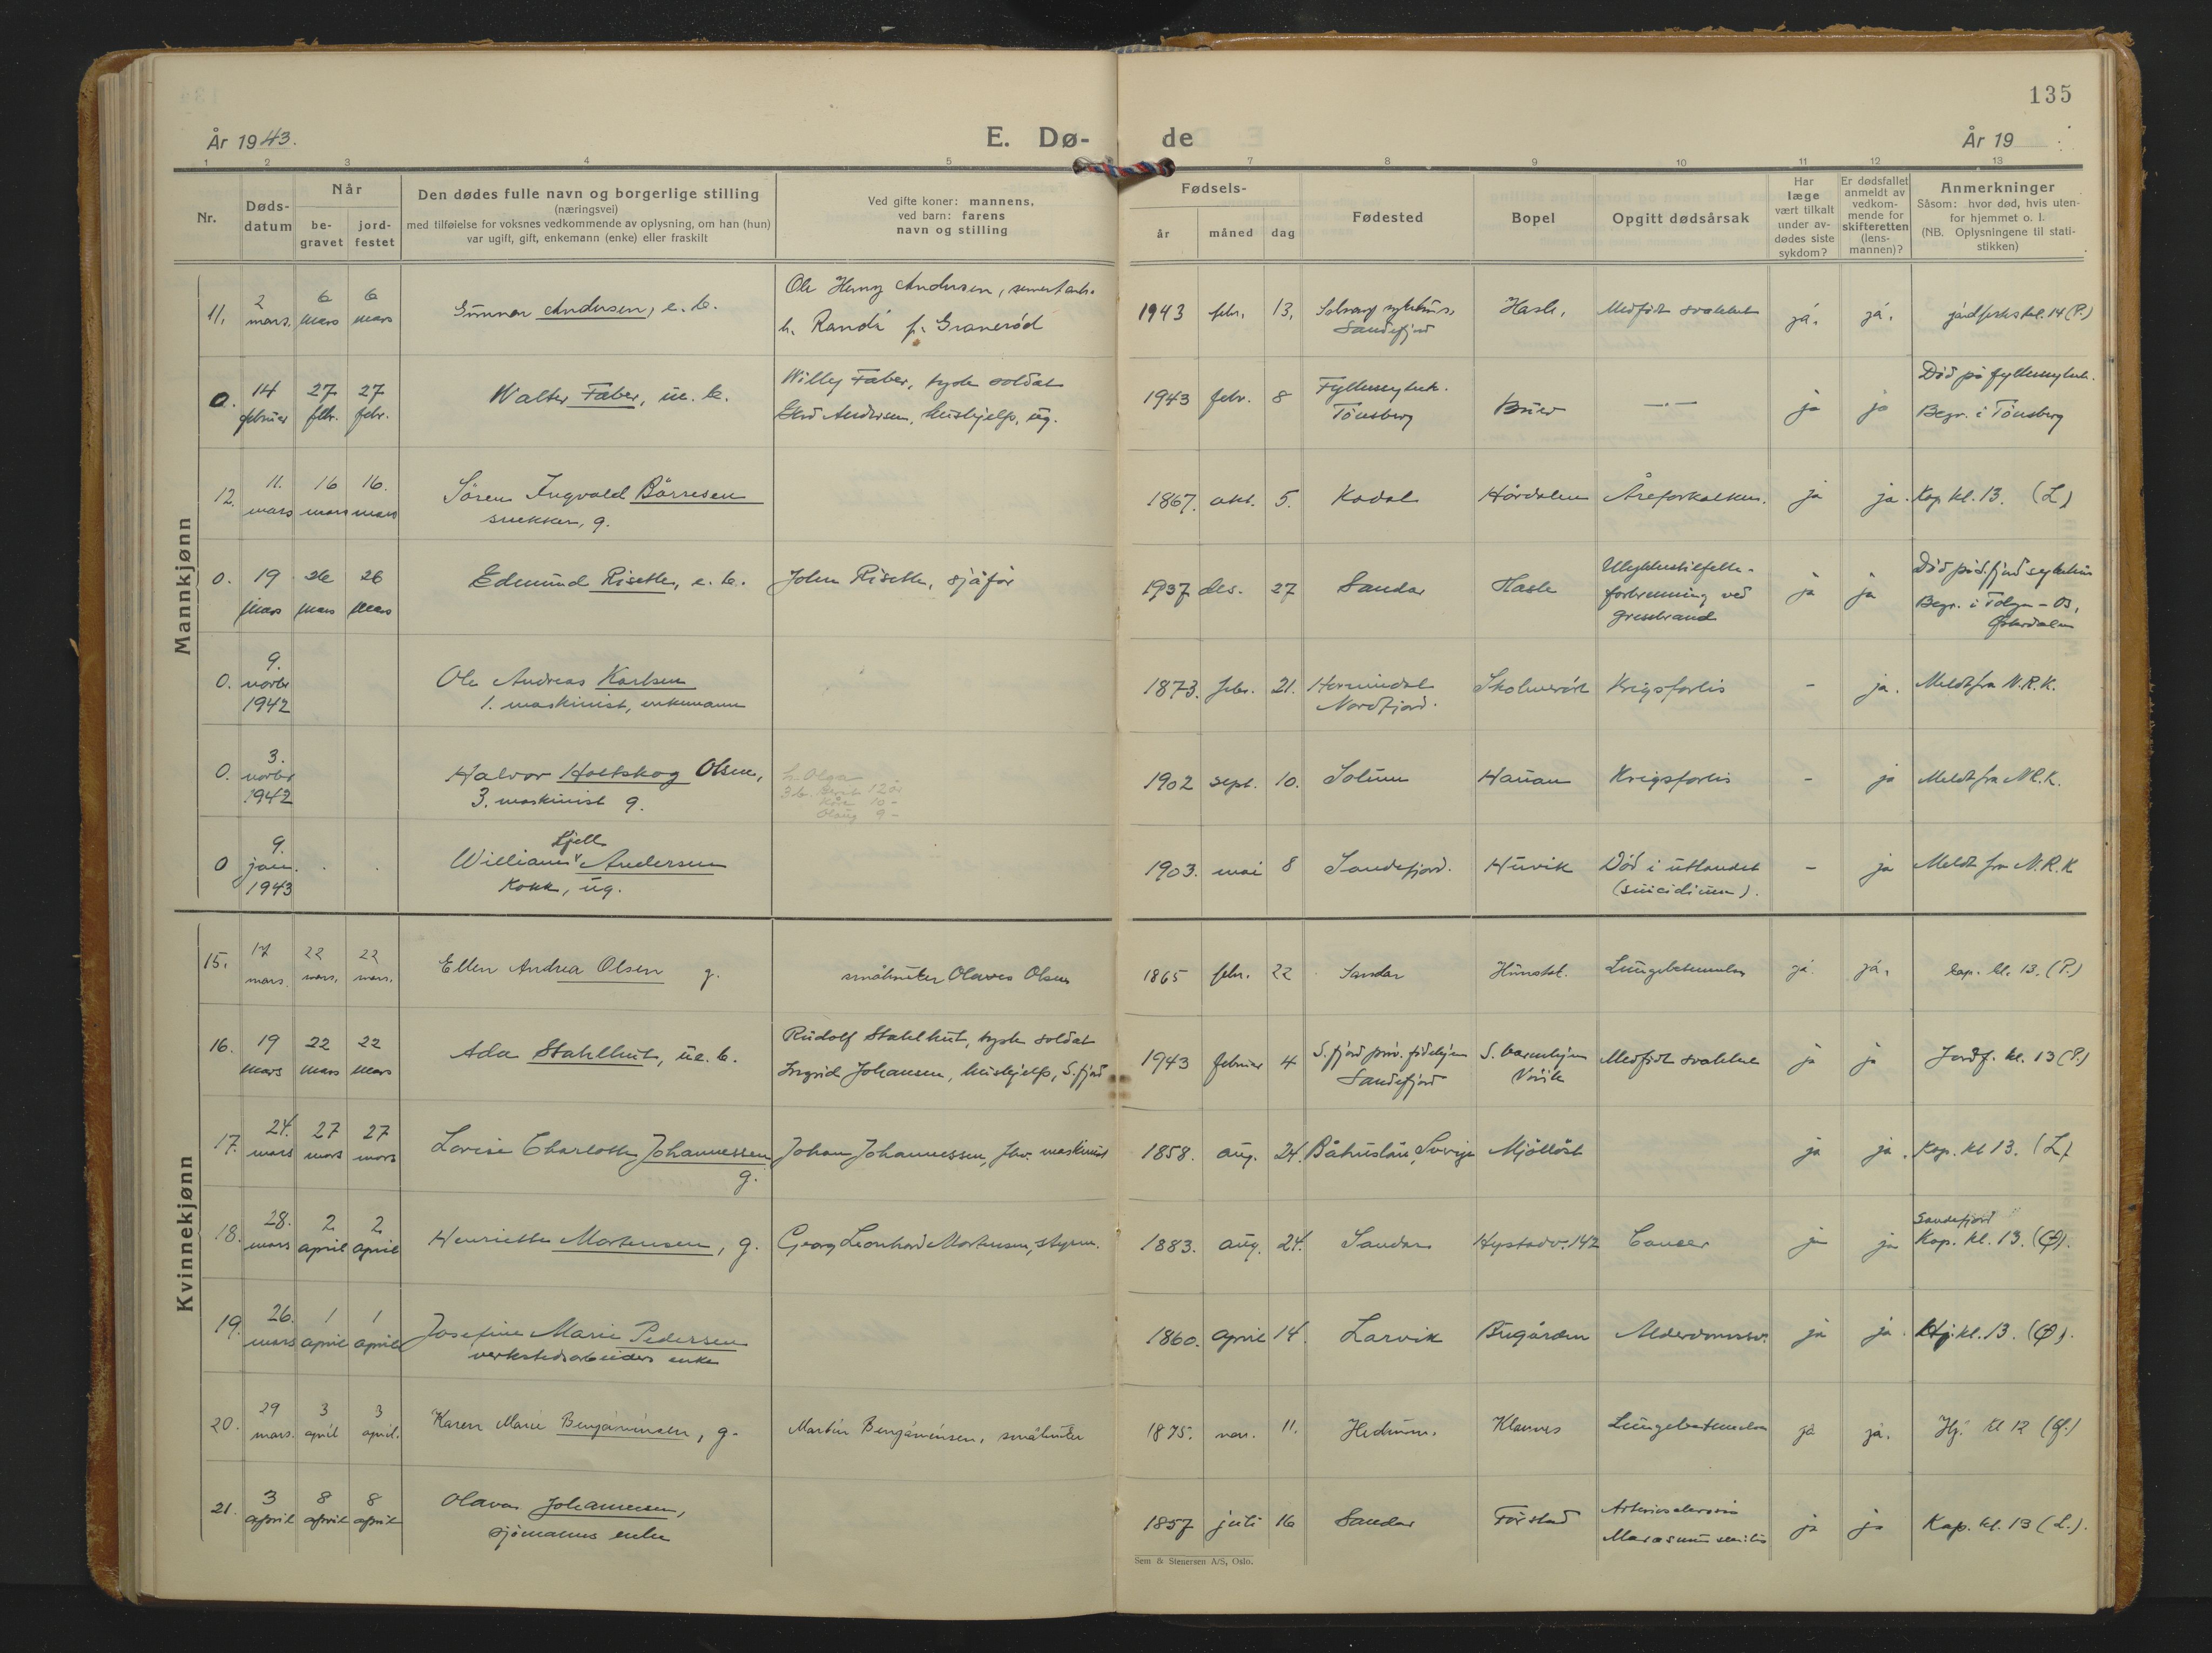 135
År 1943.
E. Dø- de
År 19
1 2 3 4 5 7 8 9 10 11 12 13
Nr.
Døds-
datum
Når
be-
gravet
jord-
festet
Den dødes fulle navn og borgerlige stilling
(næringsvei)
med tilføielse for voksnes vedkommende av oplysning, om han (hun)
var ugift, gift, enkemann (enke) eller fraskilt
Ved gifte koner: mannens,
ved barn: farens
navn og stilling
Fødsels-
år måned dag
Fødested
Bopel
Opgitt dødsårsak
Har
læge
vært tilkalt
under av-
dødes siste
sykdom?
Er dødsfallet
anmeldt av
vedkom-
mende for
skifteretten
(lens-
mannen)?
Anmerkninger
Såsom: hvor død, hvis uten-
for hjemmet o. l.
(NB. Oplysningene til stati-
stikken)
Mannkjønn
11. 2 mars. 6 mars 6 mars
Gunnar Andersen, e. b.
Ole Henry Andersen,
h. Randi f. Granerød
1943 febr. 13.
Sandefjord
Hasle.
Medfødt svakhet
ja. ja.
kl. 14 (P.)
0. 14 februar 27 febr. 27 febr.
Walter Faber, u.e. b.
Willy Faber, tysk soldat
Gerd Andersen, hushjelp, ug.
1943 febr. 8
Fylkessykeh.
Tönsberg
— " —
ja ja
Död på fylkessykeh.
Begr. i Tönsberg
12. 11. mars 16 mars 16. mars
Sören Ingvald Börresen
snekker, g.
1867. okt. 5.
Kodal
Hårdalen
Åreforkalkn.
ja ja.
Kap kl. 13. (L)
0. 19 mars 26 mars 26 mars
Edmund Risetth, e. b.
John Risetth, sjåför
1937 des. 27
Sandar
Hasle
Ulykkestilfelle -
forbrenning ved
gressbrand
ja ja
Död på S.fjord sykehus
Begr. i Tolga - Os,
Østerdalen
0. 9. novbr 1942
Ole Andreas Karlsen
1. maskinist, enkemann
1873. febr. 21.
Hornindal
Nordfjord.
Krigsforlis
- ja.
Meldt fra N.R.K.
0. 3. novbr 1942
Halvor Holtskog Olsen,
3. maskinist g.
h. Olga
3 b. 12 år
Kåre 10 -
Olaug 9 -
1902 sept. 10.
Solum
Hauan
Krigsforlis
- ja
Meldt fra N.R.K.
0 9. jan. 1943
Kjell
William Andersen
Kokk, ug.
1903. mai 8
Sandefjord.
Huvik
Död i utlandet
(suicidium).
- ja
Meldt fra N.R.K
Kvinnekjønn
15. 17 mars. 22 mars. 22 mars.
Ellen Andrea Olsen g.
småbruker Olaves Olsen
1865 febr. 22
Sandar
Hunstok.
Lungebetennelse
ja. ja.
kap. kl. 13. (P.)
16. 19 mars 22 mars 22 mars
Ada Stahlhut, u.e. b.
Rudolf Stahlhut, tysk soldat
Ingrid Johansen, hushjelp, S.fjord
1943 februar 4
S.fjord priv. födehjem
Sandefjord
S. barnehjem
Medfödt svakhet
ja ja
Jordf. kl. 13 (P.)
17. 24. mars 27 mars 27 mars
Lovise Charlotte Johannessen
g.
Johan Johannessen, fhv. maskinist
1858. aug. 24.
Båhuslän, Sverige
Mjölløst
ja ja.
Kap. kl 13. (L).
18. 28. mars 2 april 2 april
Henriette Mortensen, g.
Georg Leonhard Mortensen, styrm.
1883. aug. 24.
Sandar
Hystadv. 142
Cancer
ja ja
Sandefjord
Kap. kl. 13. (Ø).
19. 26. mars 1 april 1 april
Josefine Marie Pedersen
verkstedsarbeiders enke
1860. april 14.
Larvik
Bugården
Alderdomssv.
ja ja.
Hj. kl. 13. (Ø).
20. 29 mars. 3 april 3 april.
Karen Marie Benjaminsen, g.
Martin Benjaminsen, småbruker
1875. nov. 11.
Hedrum.
Klavnes
Lungebetennelse
ja ja.
Hj. kl 12 (Ø.)
21. 3 april 8 april 8 april
Olava Johannesen,
sjömanns enke
1857 juli 16
Sandar
Forstad
Arteriosclerosis
Marasmus senilis
ja ja
Kap. kl. 13 (L.).
Sem & Stenersen A/S, Oslo.